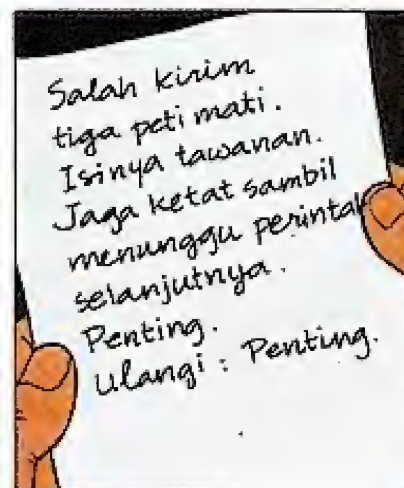 Salah kirim
tiga peti mati.
Isinya tawanan.
Jaga ketat sambil
menunggu perintah
selanjutnya.
Penting.
Ulangi : Penting.